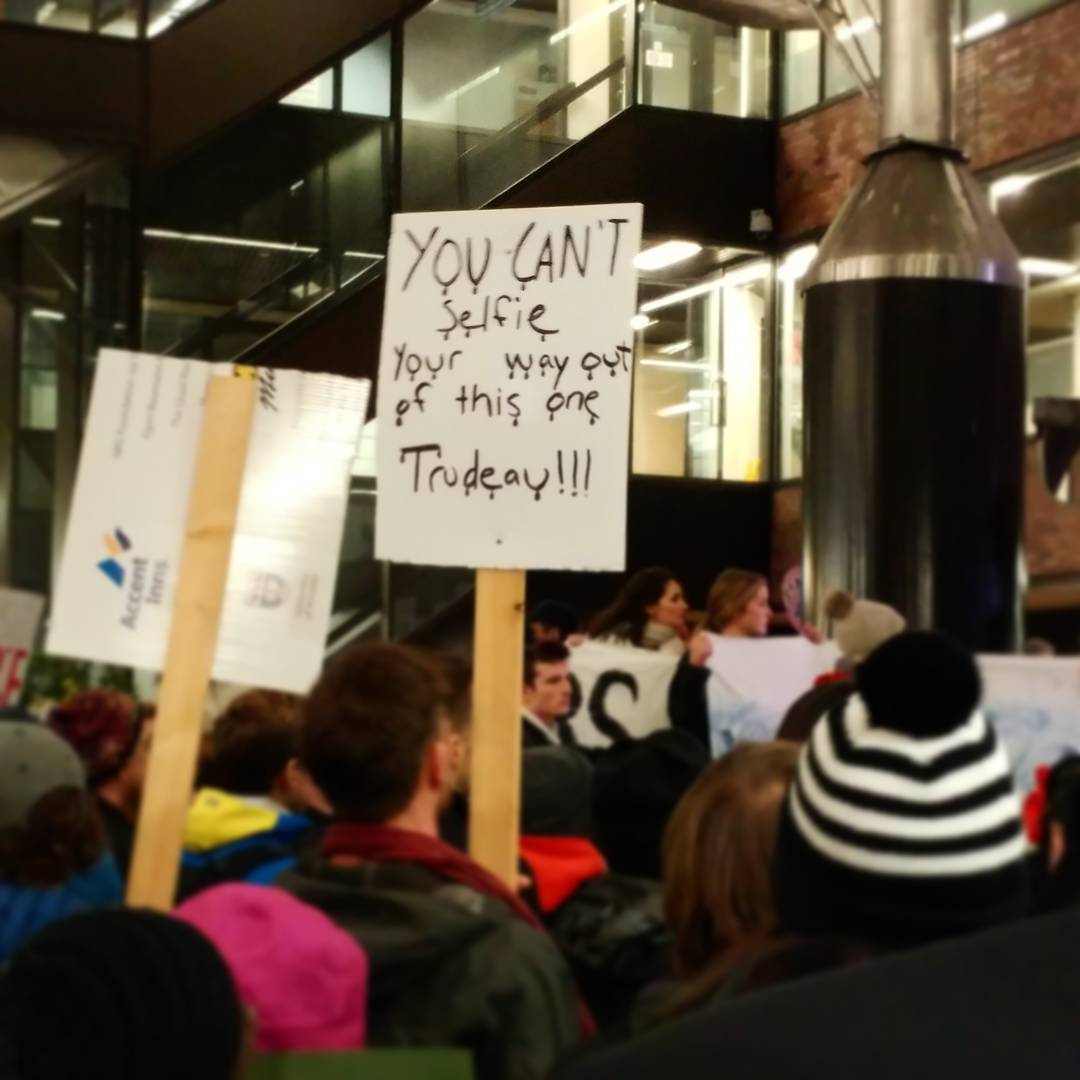 YOU CAN'T
Selfie
Your way out
of this one
Trudeau!!!
Accent
Inns